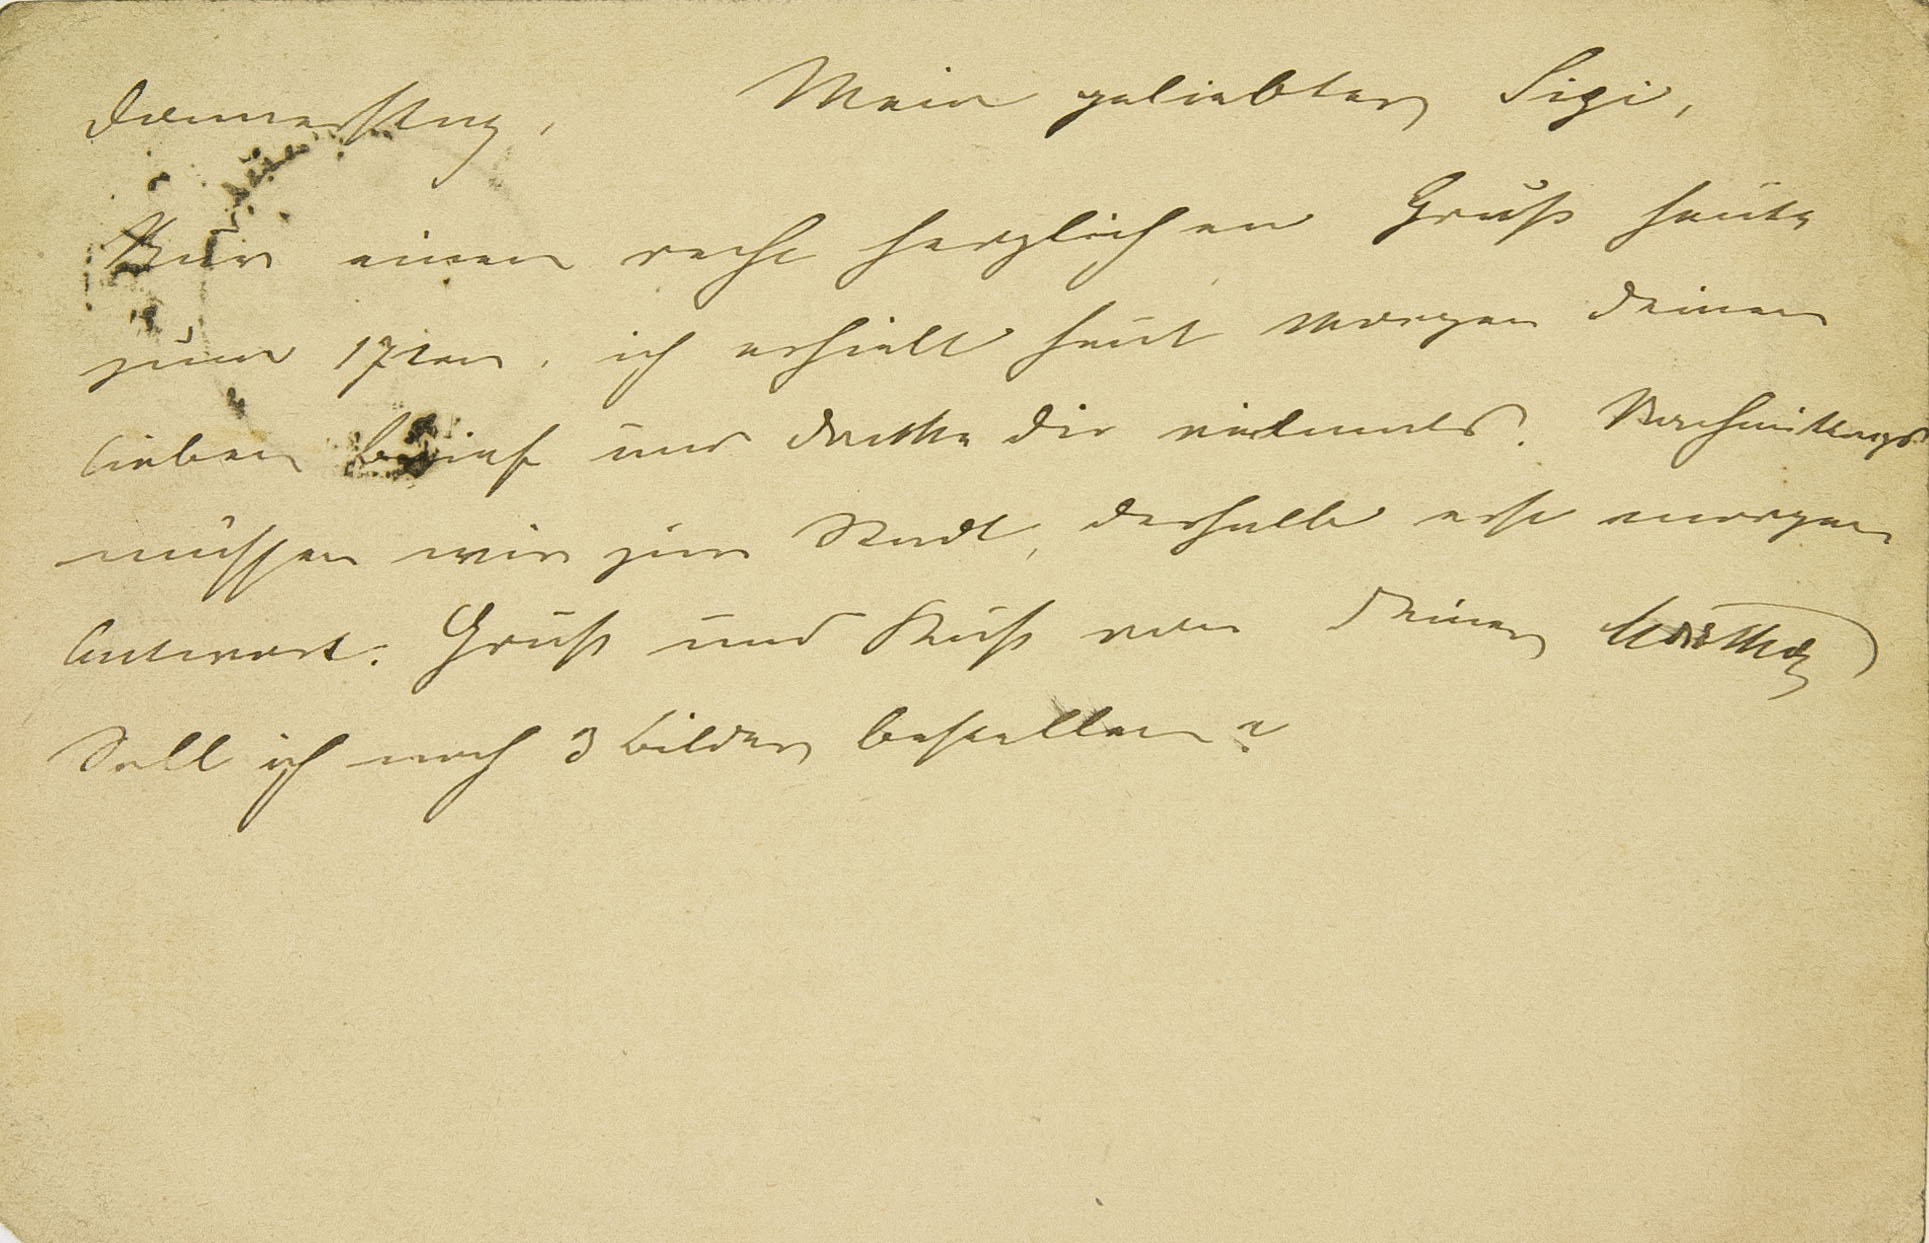 Donnerstag, Mein geliebter Sigi,
Nur einen recht herzlichen Gruß heute
zum 17ten, ich erhielt heut Morgen Deinen
lieben Brief und danke Dir vielmals. Nachmittags
müssen wir zur Stadt, deshalb erst morgen
Antwort. Gruß und Kuß von Deiner Martha
Soll ich noch 3 Bilder bestellen?